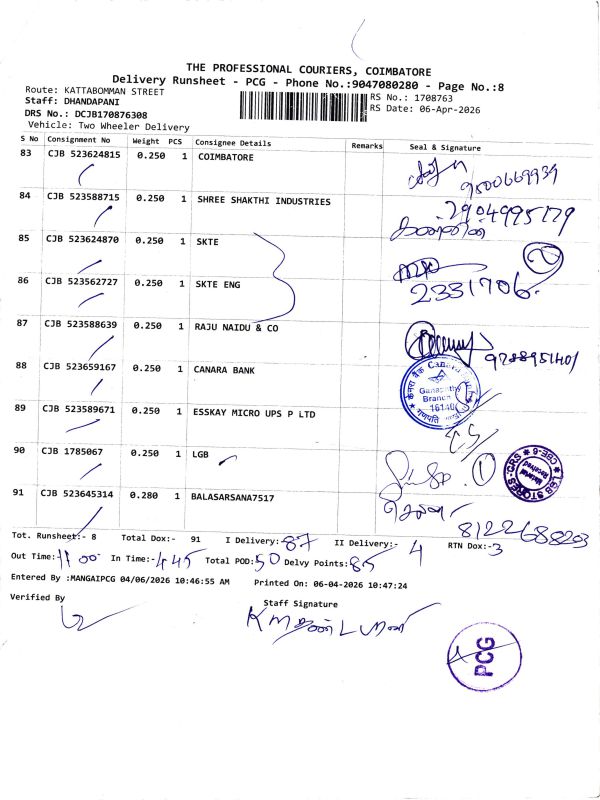 THE PROFESSIONAL COURIERS, COIMBATORE
Delivery Runsheet - PCG - Phone No.:9047080280 - Page No.:8
Route: KATTABOMMAN STREET
Staff: DHANDAPANI
DRS No.: DCJB170876308
Vehicle: Two Wheeler Delivery
RS No.: 1708763
RS Date: 06-Apr-2026
S No Consignment No Weight PCS Consignee Details Remarks Seal & Signature
83 CJB 523624815 0.250 1 COIMBATORE
9500669939
84 CJB 523588715 0.250 1 SHREE SHAKTHI INDUSTRIES 2904995179
85 CJB 523624870 0.250 1 SKTE
86 CJB 523562727 0.250 1 SKTE ENG 2331706.
87 CJB 523588639 0.250 1 RAJU NAIDU & CO
9788951401
88 CJB 523659167 0.250 1 CANARA BANK
Ganapathy
Branch
16140
89 CJB 523589671 0.250 1 ESSKAY MICRO UPS P LTD
90 CJB 1785067 0.250 1 LGB
LGB STORES-GRS CBE-6
Material
Received
91 CJB 523645314 0.280 1 BALASARSANA7517
8122688203
Tot. Runsheet:- 8 Total Dox:- 91 I Delivery:- 87 II Delivery:- 4 RTN Dox:- 3
Out Time:- 11 00 In Time:- 4 45 Total POD: 50 Delvy Points: 85
Entered By :MANGAIPCG 04/06/2026 10:46:55 AM Printed On: 06-04-2026 10:47:24
Verified By
Staff Signature
PCG